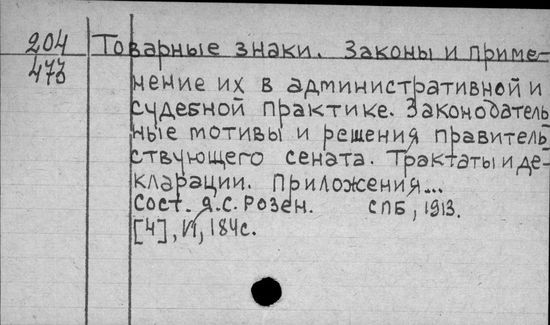 204 Товарные знаки. Законы и приме-
473 нение их в административной и
судебной практике. Законодатель
ные мотивы и решения правитель
ствующего сената. Трактаты и де-
кларации. Приложения...
Сост. Я.С. Розен. СПБ, 1913.
[4], VI, 184с.